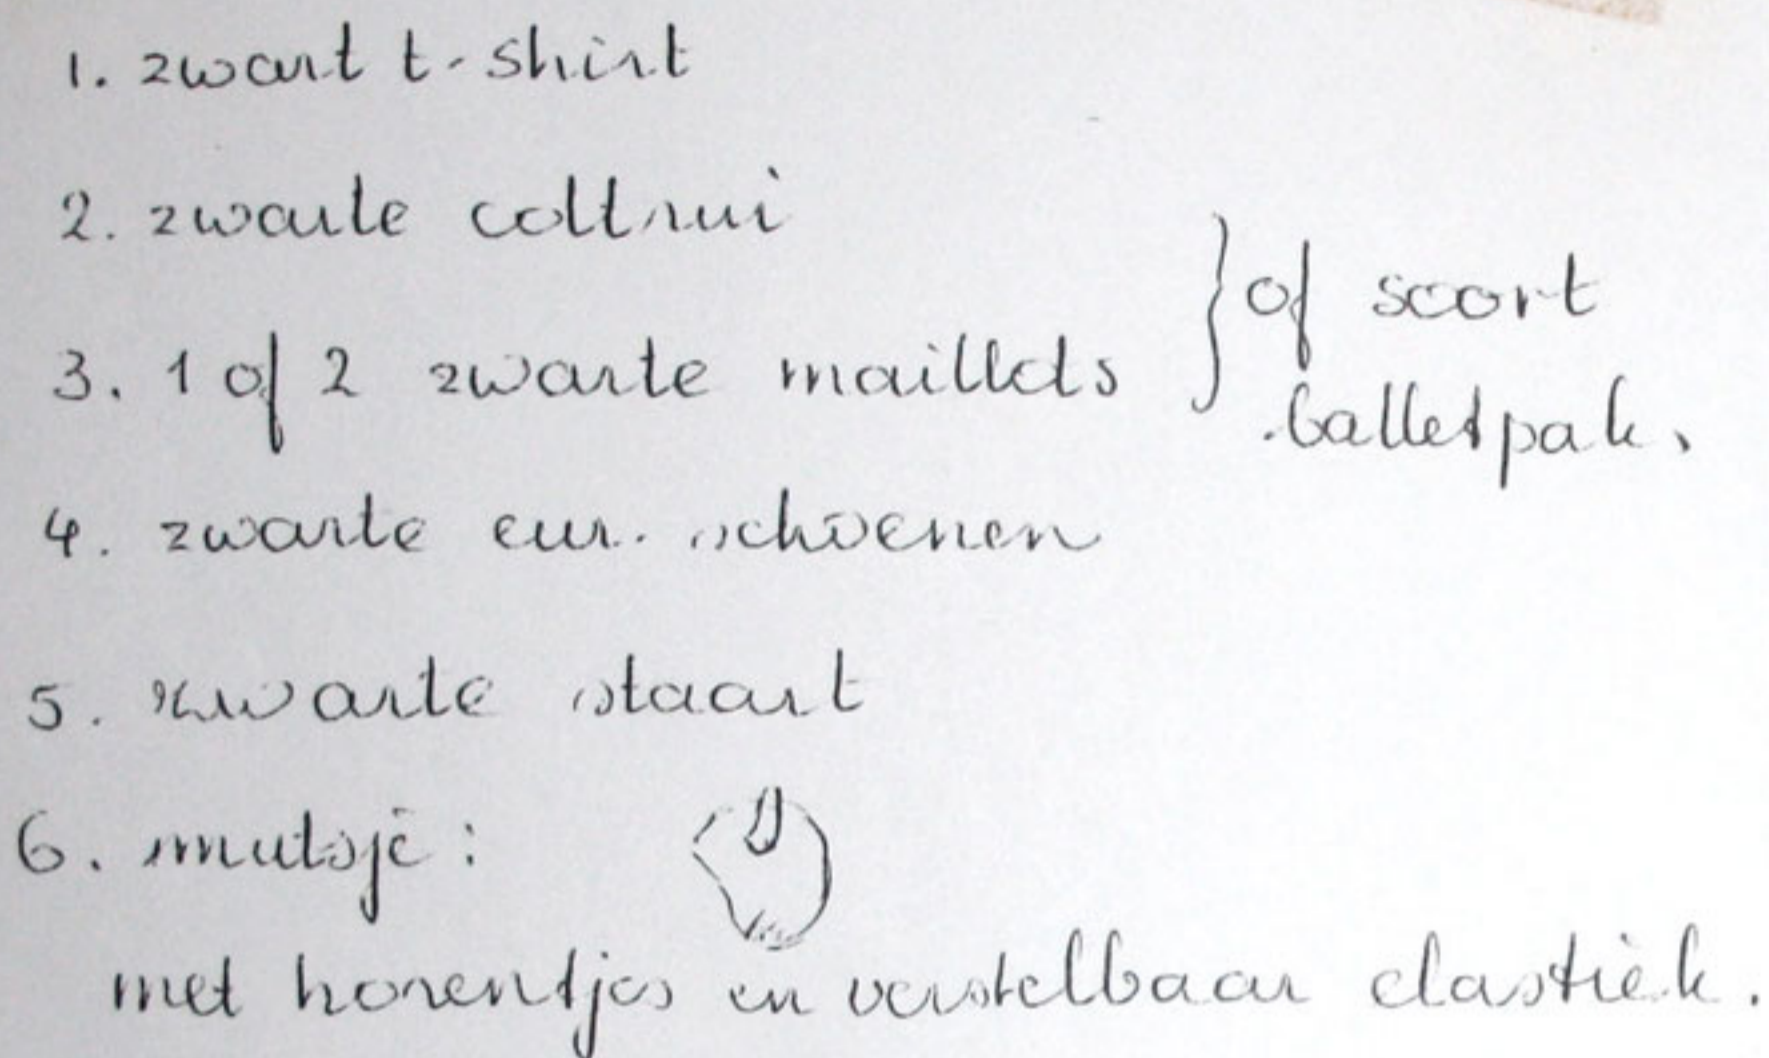 1. zwart t-shirt
2. zwarte coltrui
3. 1 of 2 zwarte maillots
} of soort
balletpak.
4. zwarte eur. schoenen
5. zwarte staart
6. mutsje:
met horentjes en verstelbaar elastiek.